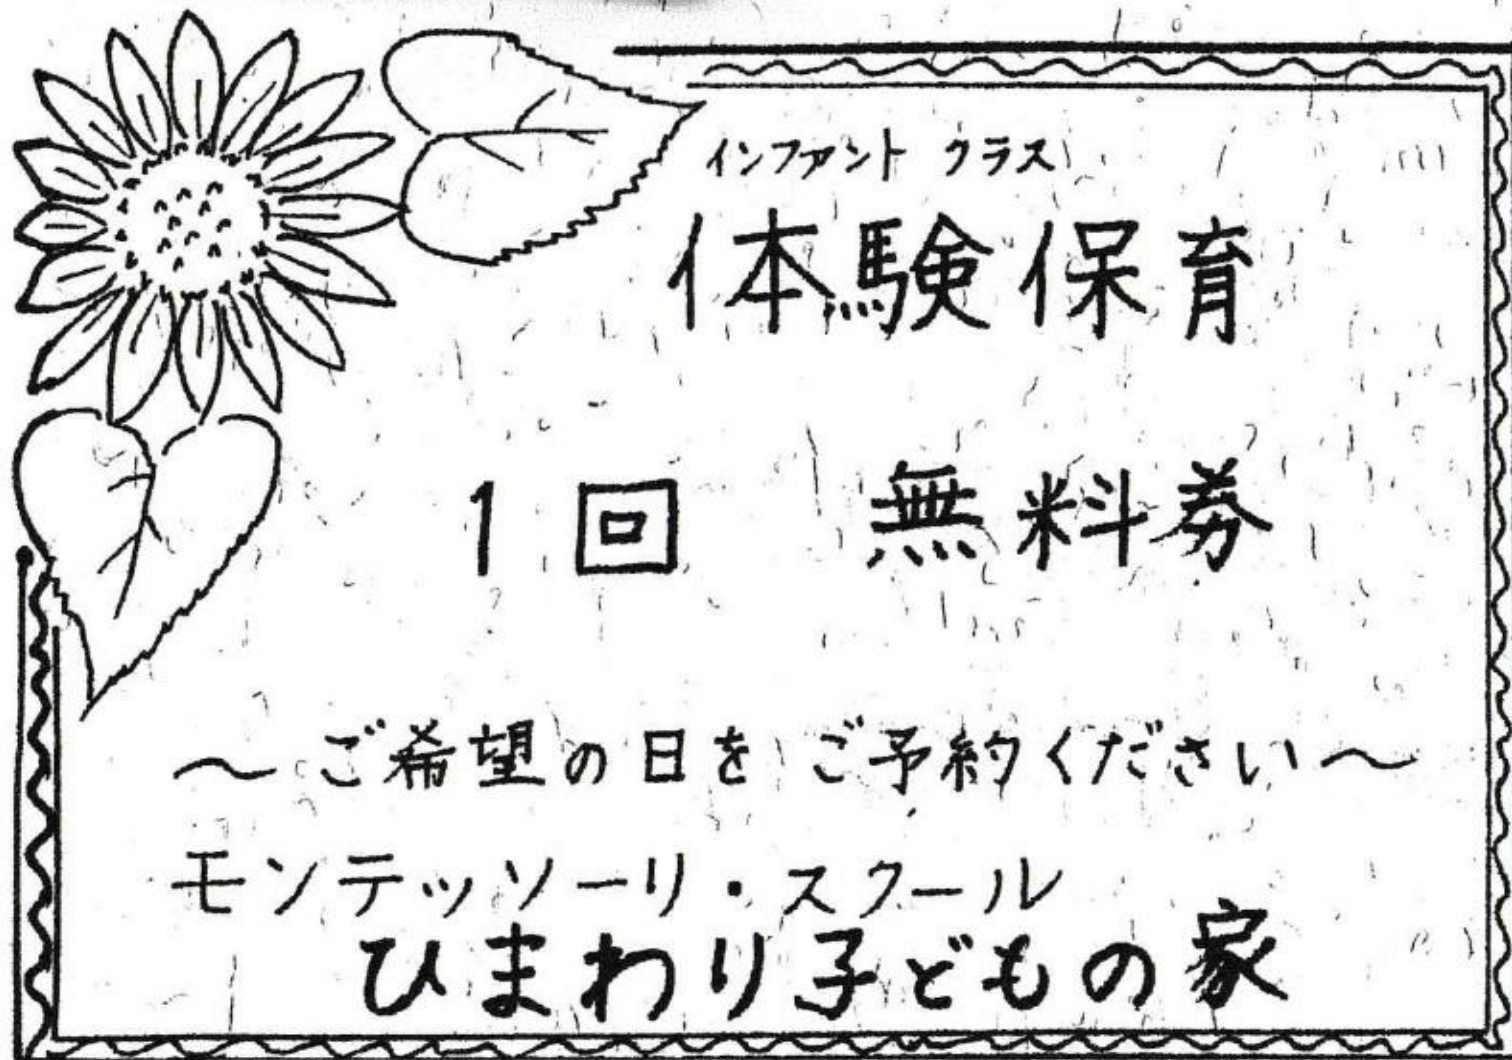 インファント クラス
体験保育
1回 無料券
〜ご希望の日を ご予約ください〜
モンテッソーリ・スクール
ひまわり子どもの家